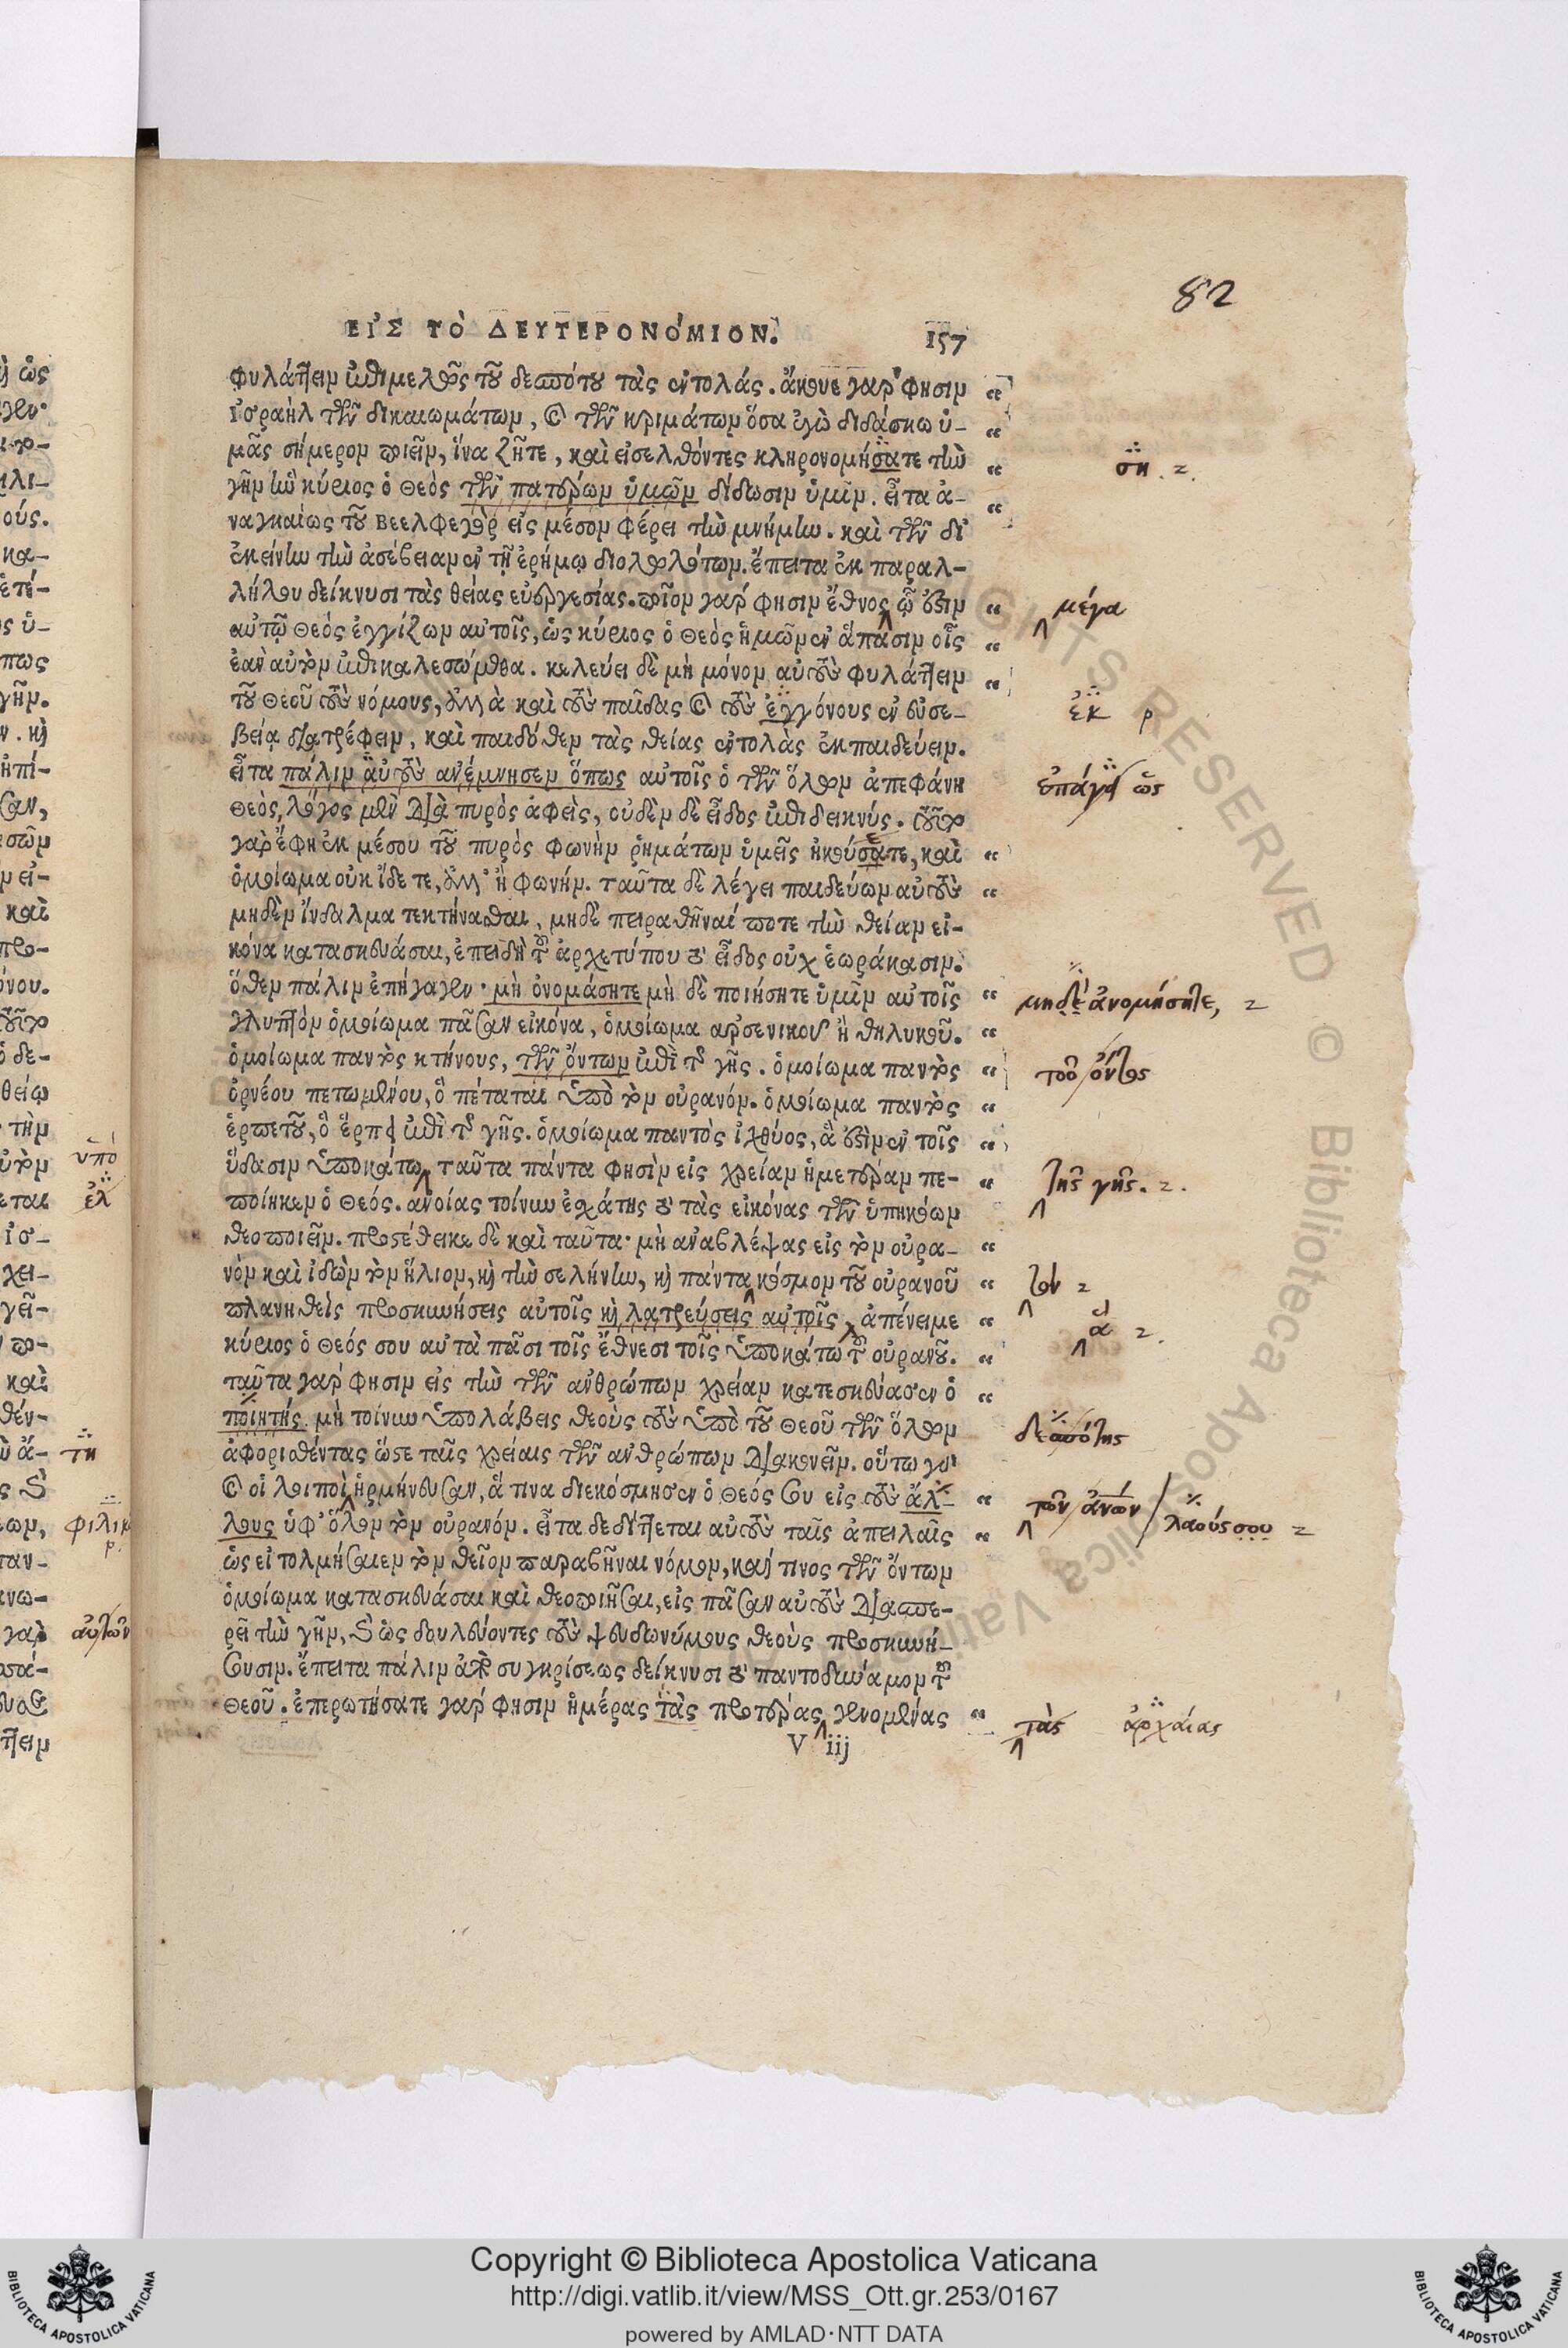 82
ΕΙ᾿Σ ΤΟ` ΔΕΥΤΕΡΟΝΟ´ΜΙΟΝ. 157
φυλάττειν ἐπιμελῶς τοῦ δεσπότου τὰς ἐντολάς. ἄκουε γάρ φησιν “
ἰσραὴλ τῶν δικαιωμάτων, καὶ τῶν κριμάτων ὅσα ἐγὼ διδάσκω ὑ- “
μᾶς σήμερον ποιεῖν, ἵνα ζῆτε, καὶ εἰσελθόντες κληρονομήσατε τὴν “ ση
γῆν ἣν κύριος ὁ θεὸς τῶν πατέρων ὑμῶν δίδωσιν ὑμῖν. εἶτα ἀ- “
ναγκαίως τοῦ βεελφεγὼρ εἰς μέσον φέρει τὴν μνήμην. καὶ τῶν δι᾿
ἐκείνην τὴν ἀσέβειαν ἐν τῇ ἐρήμῳ διολωλότων. ἔπειτα ἐκ παραλ-
λήλου δείκνυσι τὰς θείας εὐεργεσίας. ποῖον γάρ φησιν ἔθνος ᾧ ἐστιν “ μέγα
αὐτῷ θεὸς ἐγγίζων αὐτοῖς, ὡς κύριος ὁ θεὸς ἡμῶν ἐν ἅπασιν οἷς “
ἐὰν αὐτὸν ἐπικαλεσώμεθα. κελεύει δὲ μὴ μόνον αὐτοὺς φυλάττειν “
τοῦ θεοῦ τοὺς νόμους, ἀλλὰ καὶ τοὺς παῖδας καὶ τοὺς ἐγγόνους ἐν εὐσε- ἐκ ρ
βείᾳ διατρέφειν, καὶ παιδόθεν τὰς θείας ἐντολὰς ἐκπαιδεύειν.
εἶτα πάλιν αὐτοὺς ἀνέμνησεν ὅπως αὐτοῖς ὁ τῶν ὅλων ἀπεφάνη ἐπάγει ὡς
θεὸς, λόγος μὲν διὰ πυρὸς ἀφεὶς, οὐδὲν δὲ εἶδος ἐπιδεικνύς. τοῦτο
γὰρ ἔφη ἐκ μέσου τοῦ πυρὸς φωνὴν ῥημάτων ὑμεῖς ἠκούσατε, καὶ “
ὁμοίωμα οὐκ ἴδετε, ἀλλ᾿ ἢ φωνήν. ταῦτα δὲ λέγει παιδεύων αὐτοὺς “
μηδὲν ἴνδαλμα τεκτήνασθαι, μηδὲ πειραθῆναί ποτε τὴν θείαν εἰ-
κόνα κατασκευάσαι, ἐπειδὴ τοῦ ἀρχετύπου τὸ εἶδος οὐχ ἑωράκασιν.
ὅθεν πάλιν ἐπήγαγεν· μὴ ὀνομάσητε μὴ δὲ ποιήσητε ὑμῖν αὐτοῖς “ μηδὲ ἀνομήσητε,
γλυπτὸν ὁμοίωμα πᾶσαν εἰκόνα, ὁμοίωμα ἀρσενικοῦ ἢ θηλυκοῦ. “
ὁμοίωμα παντὸς κτήνους, τῶν ὄντων ἐπὶ τῆς γῆς. ὁμοίωμα παντὸς “ τοῦ ὄντος
ὀρνέου πετωμένου, ὃ πέταται ὑπὸ τὸν οὐρανόν. ὁμοίωμα παντὸς “
ἑρπετοῦ, ὃ ἕρπει ἐπὶ τῆς γῆς. ὁμοίωμα παντὸς ἰχθύος, ἅ ἐστιν ἐν τοῖς “
ὕδασιν ὑποκάτω, ταῦτα πάντα φησὶν εἰς χρείαν ἡμετέραν πε- “ τῆς γῆς.
ποίηκεν ὁ θεός. ἀνοίας τοίνυν ἐσχάτης τὸ τὰς εἰκόνας τῶν ὑπηκόων
θεοποιεῖν. προστέθεικε δὲ καὶ ταῦτα· μὴ ἀναβλέψας εἰς τὸν οὐρα- “
νὸν καὶ ἰδὼν τὸν ἥλιον, καὶ τὴν σελήνην, καὶ πάντα κόσμον τοῦ οὐρανοῦ “ τὸν
πλανηθεὶς προσκυνήσεις αὐτοῖς καὶ λατρεύσεις αὐτοῖς, ἀπένειμε “ ἃ
κύριος ὁ θεός σου αὐτὰ πᾶσι τοῖς ἔθνεσι τοῖς ὑποκάτω τοῦ οὐρανοῦ. “
ταῦτα γάρ φησιν εἰς τὴν τῶν ἀνθρώπων χρείαν κατεσκεύασεν ὁ “
ποιητής. μὴ τοίνυν ὑπολάβεις θεοὺς τοὺς ὑπὸ τοῦ θεοῦ τῶν ὅλων δεσπότης
ἀφορισθέντας ὥστε ταῖς χρείαις τῶν ἀνθρώπων διακονεῖν. οὕτω γὰρ
καὶ οἱ λοιποὶ ἡρμήνευσαν, ἅ τινα διεκόσμησεν ὁ θεός σου εἰς τοὺς ἀλ- “ τῶν ἀνων
λους ὑφ᾿ ὅλον τὸν οὐρανόν. εἶτα δεδίττεται αὐτοὺς ταῖς ἀπειλαῖς “ λαούς σου
ὡς εἰ τολμήσαιεν τὸν θεῖον παραβῆναι νόμον, καί τινος τῶν ὄντων
ὁμοίωμα κατασκευάσαι καὶ θεοποιῆσαι, εἰς πᾶσαν αὐτοὺς διασπε-
ρεῖ τὴν γῆν, καὶ ὡς δουλεύοντες τοὺς ψευδωνύμους θεοὺς προσκυνή-
σουσιν. ἔπειτα πάλιν ἀπὸ συγκρίσεως δείκνυσι τὸ παντοδύναμον τοῦ
θεοῦ. ἐπερωτήσατε γάρ φησιν ἡμέρας τὰς προτέρας γενομένας “ τὰς ἀρχαίας
V iij
Copyright © Biblioteca Apostolica Vaticana
http://digi.vatlib.it/view/MSS_Ott.gr.253/0167
powered by AMLAD·NTT DATA